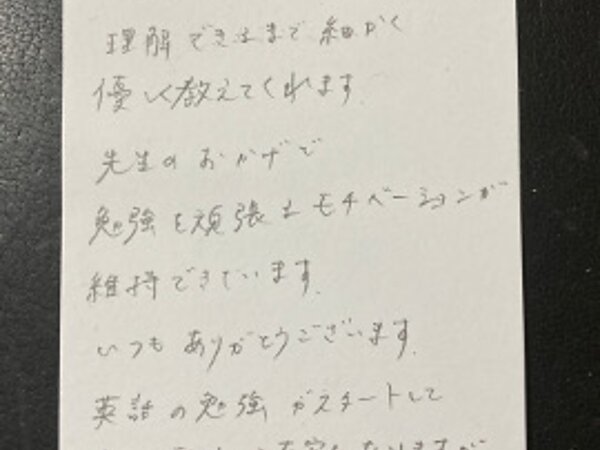 理解できるまで細かく
優しく教えてくれます。
先生のおかげで
勉強を頑張るモチベーションが
維持できています。
いつもありがとうございます。
英語の勉強がスタートして